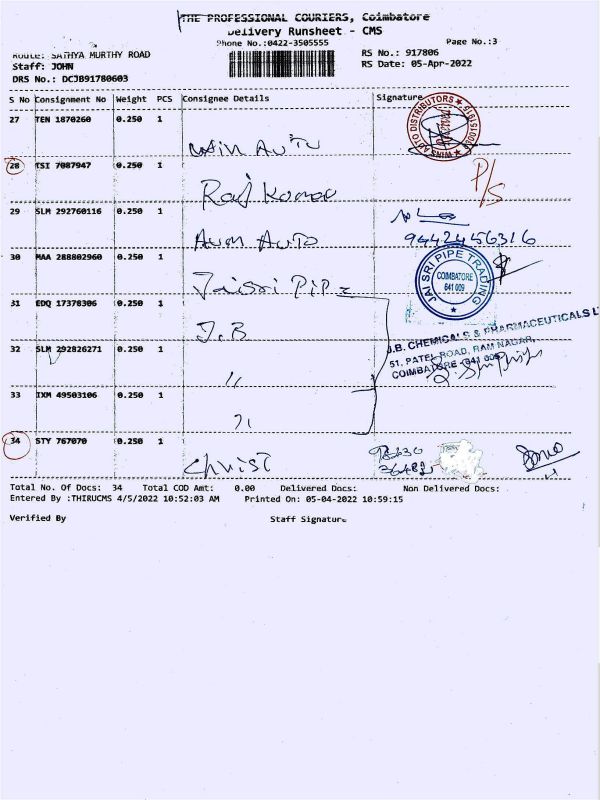 THE PROFESSIONAL COURIERS, Coimbatore
Delivery Runsheet - CMS
Phone No.:0422-3505555
Page No.:3
ROUTE: SATHYA MURTHY ROAD
RS No.: 917806
Staff: JOHN
RS Date: 05-Apr-2022
DRS No.: DCJB91780603
S No Consignment No Weight PCS Consignee Details Signature
27 TEN 1870260 0.250 1
Win Auto
AUTO DISTRIBUTORS
28 TSI 7087947 0.250 1
Raj Kumar
P/S
29 SLM 292760116 0.250 1
Aum Auto
9442456316
30 MAA 288802960 0.250 1
Jaissri Pipe
JAI SRI PIPE TRADING
COIMBATORE
641 009
31 EDQ 17378306 0.250 1
J.B
J.B. CHEMICALS & PHARMACEUTICALS L
51, PATEL ROAD, RAM NAGAR,
COIMBATORE - 641 009
32 SLM 292826271 0.250 1
"
33 IXM 49503106 0.250 1
"
34 STY 767070 0.250 1
Christ
Total No. Of Docs: 34 Total COD Amt: 0.00 Delivered Docs: Non Delivered Docs:
Entered By :THIRUCMS 4/5/2022 10:52:03 AM Printed On: 05-04-2022 10:59:15
Verified By Staff Signature